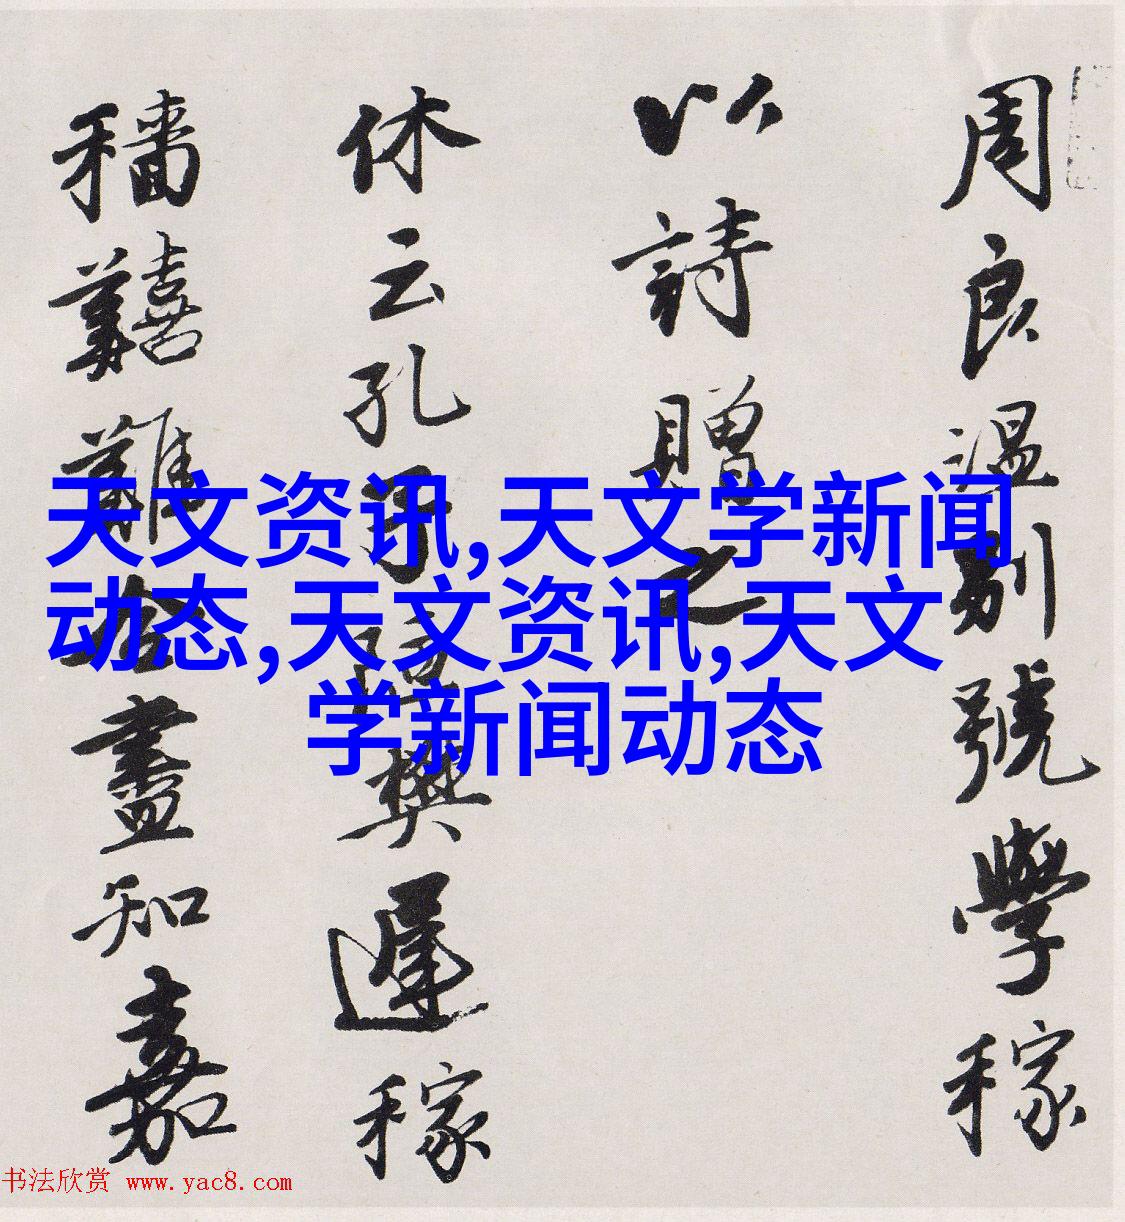 周良温别號學稼
以詩贈之
休云孔門陋樊遲稼
穡囏難盡知嘉
天文资讯,天文学新闻
动态,天文资讯,天文
学新闻动态
书法欣赏 www.yac8.com